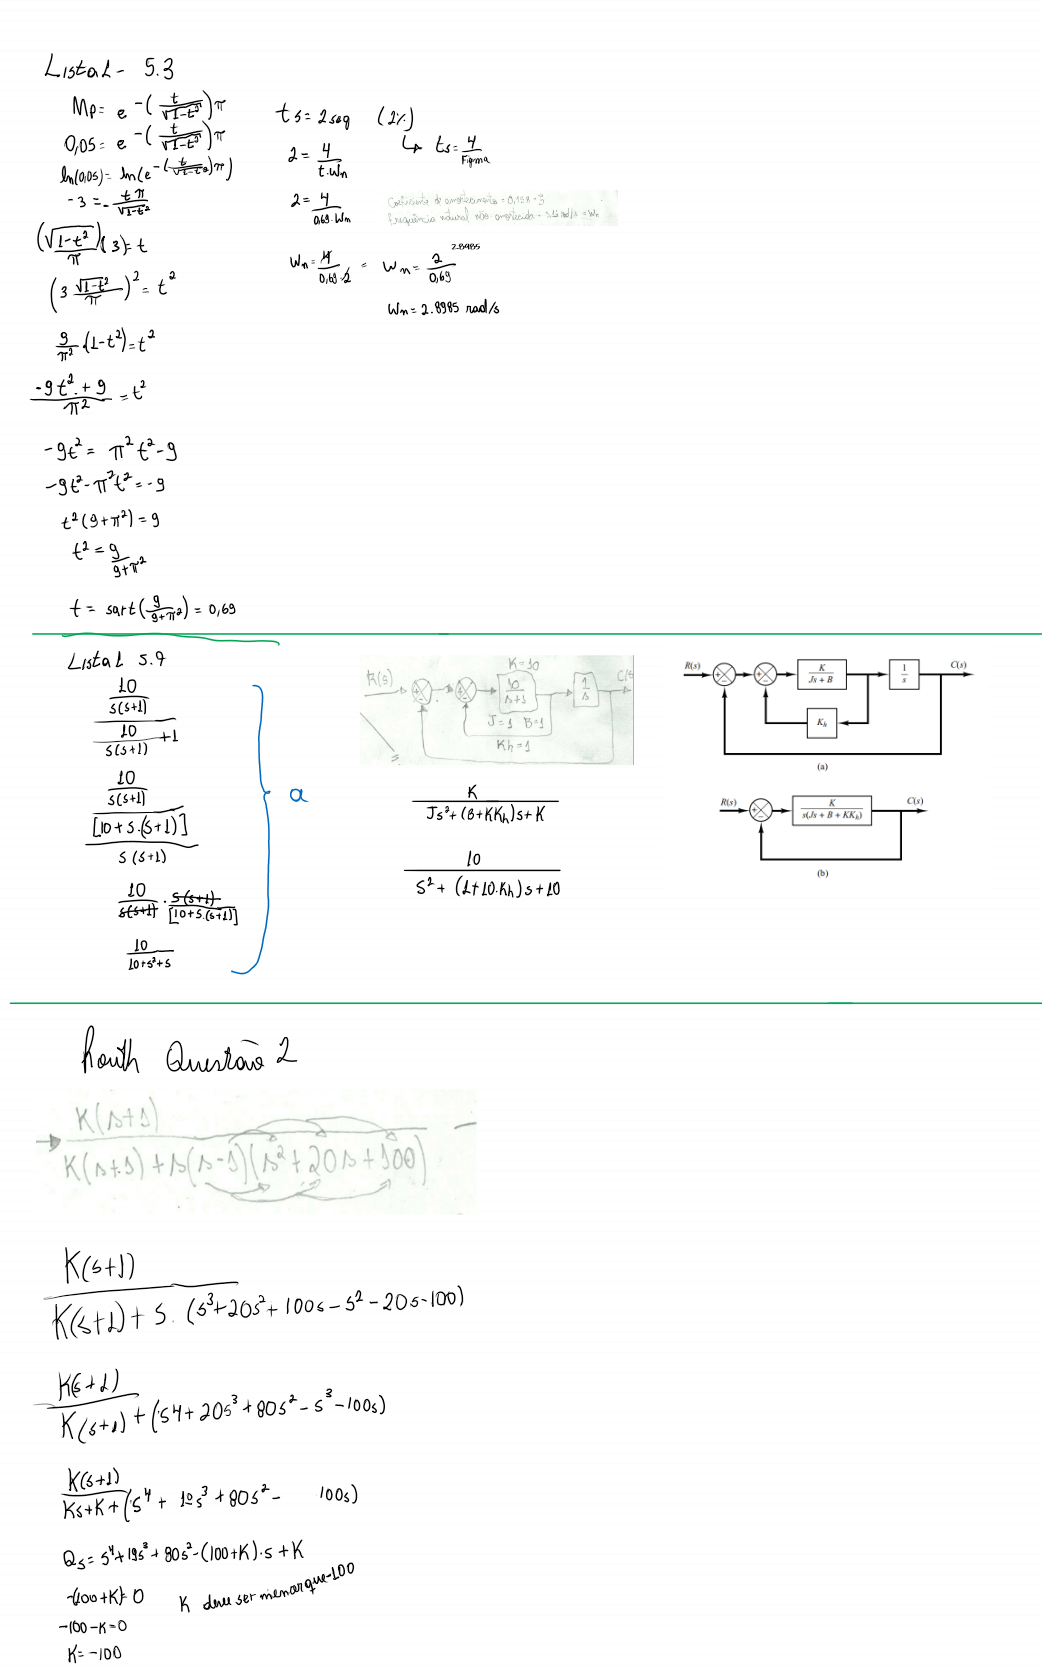 Lista 1 - 5.3
Mp = e^-(t/√1-t²)π
0,05 = e^-(t/√1-t²)π
ln(0,05) = ln(e^-(t/√1-t²)π)
-3 = -tπ/√1-t²
(√1-t²/π)(3) = t
(3 √1-t²/π)² = t²
9/π² · (1-t²) = t²
-9t² + 9/π² = t²
-9t² = π²t² - 9
-9t² - π²t² = -9
t²(9+π²) = 9
t² = 9/9+π²
t = sqrt(9/9+π²) = 0,69
ts = 2 seg (2%)
↳ ts = 4/Figma
2 = 4/t.Wn
2 = 4/0,69.Wn
Coeficiente de amortecimento = 0,158 = ξ
frequência natural não amortecida = 3,16 rad/s = Wn
Wn = 4/0,69.2 = Wn = 2/0,69
2.8985
Wn = 2.8985 rad/s
Lista 1 5.9
10/s(s+1)
10/s(s+1) +1
10/s(s+1)
[10+s.(s+1)]
s(s+1)
10/s(s+1) · s(s+1)/[10+s.(s+1)]
10/10+s²+s
a
K=10
R(s) 10/s+1 1/s C(s)
J=1 B=1
Kh=1
K
Js²+(B+KKh)s+K
10
s²+(1+10.Kh)s+10
R(s) K/Js + B 1/s C(s)
Kh
(a)
R(s) K/s(Js + B + KKh) C(s)
(b)
Routh Questão 2
K(s+1)
K(s+1)+s(s-1)(s²+20s+100)
K(s+1)
K(s+1)+s.(s³+20s²+100s-s²-20s-100)
K(s+1)
K(s+1)+(s4+20s³+80s²-s³-100s)
K(s+1)
Ks+K+(s⁴+19s³+80s²- 100s)
Qs = s⁴+19s³+80s²-(100+K).s+K
-(100+K)=0
K deve ser menor que -100
-100-K=0
K=-100